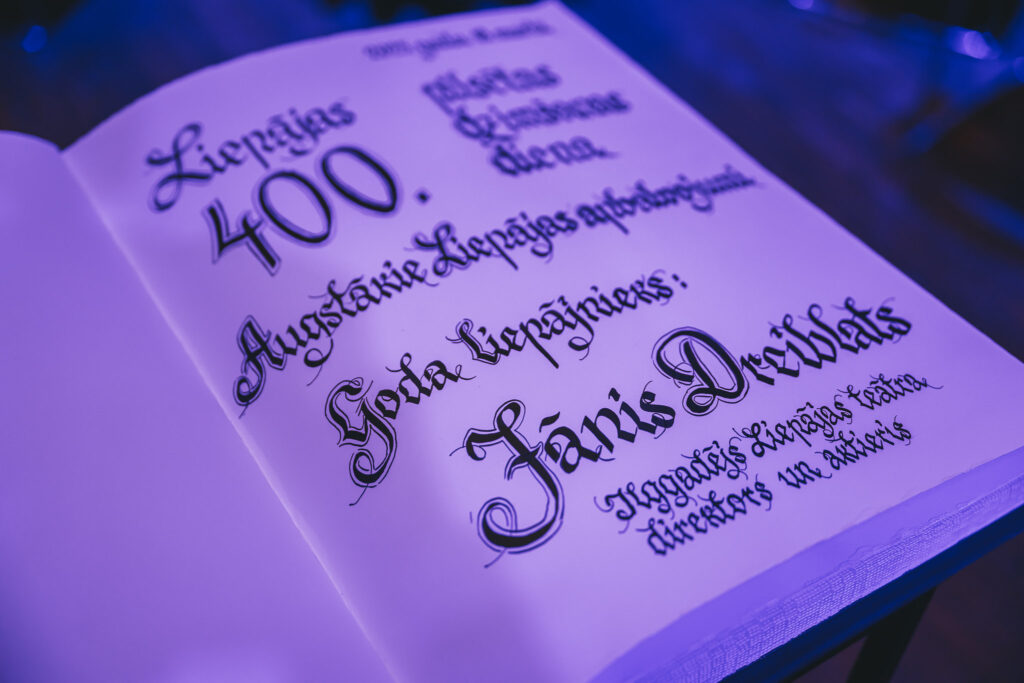 gada
pilsētas
dzimšanas
diena
Liepājas
400.
Augstākie Liepājas apbalvojumi
Goda liepājnieks:
Jānis Dreiblats
Ilggadējs Liepājas teātra
direktors un aktieris